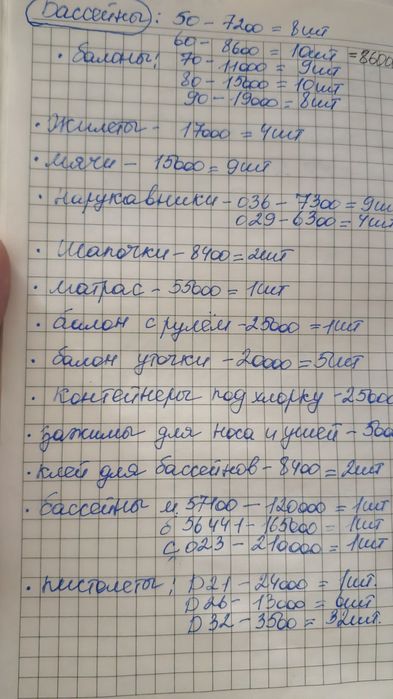 Бассейны:
50 - 7200 = 8шт
60 - 8600 = 10шт =8600
• балоны: 70 - 11000 = 9шт
80 - 15000 = 10шт
90 - 19000 = 8шт
• Жилеты - 17000 = 4шт
• Мячи - 15000 = 9шт
• Нарукавники - 036 - 7300 = 9ш
029 - 6300 = 4шт
• Шапочки - 8400 = 2шт
• матрас - 55000 = 1шт
• балон с рулём - 25000 = 1шт
• балон уточки - 20000 = 5шт
• Контейнеры под хлорку - 25000
• зажимы для носа и ушей - 500
• клей для бассейнов - 8400 = 2шт
• бассейны м. 57100 - 120000 = 1шт
б 56441 - 165000 = 1шт
с, 023 - 210000 = 1шт
• пистолеты: D21 - 24000 = 1шт.
D26 - 13000 = шт
D32 - 3500 = 32шт.